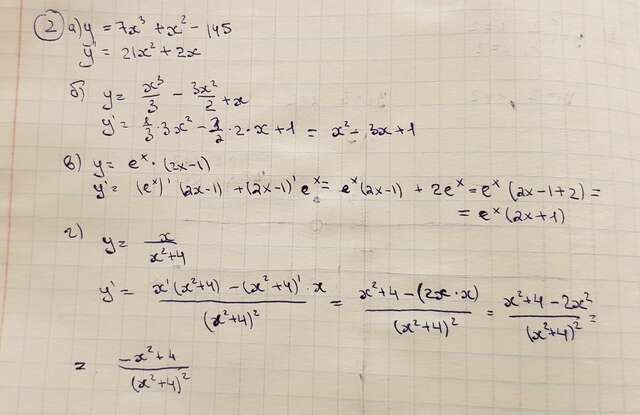 2) а) y = 7x³ + x² - 145
y' = 21x² + 2x
б) y = x³/3 - 3x²/2 + x
y' = 1/3 · 3x² - 3/2 · 2 · x + 1 = x² - 3x + 1
в) y = eˣ · (2x-1)
y' = (eˣ)' (2x-1) + (2x-1)' eˣ = eˣ(2x-1) + 2eˣ = eˣ (2x-1+2) =
= eˣ(2x+1)
г) y = x/(x²+4)
y' = (x'(x²+4) - (x²+4)' · x)/(x²+4)² = (x²+4-(2x·x))/(x²+4)² = (x²+4-2x²)/(x²+4)² =
= (-x²+4)/(x²+4)²